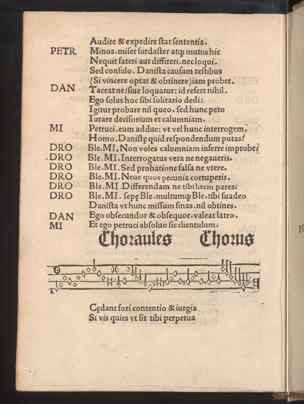 Audire & expedire stat sententia.
PETR Minos. miser surdaster atq; mutus hic
Nequit fateri aut diffiteri. nec loqui.
Sed consulo. Danista causam testibus
(Si vincere optat & obtinere) iam probet.
DAN Taceat ne/siue loquatur: id refert nihil.
Ego solus hoc sibi solitario dedi:
Igitur probare nil queo. sed hunc peto
Iurare decisorium et calumniam.
MI Petruci. eum adduc: vt vel hunc interrogem,
Homo. Danistę quid respondendum putas?
DRO Ble. MI. Non voles calumniam inferre improbe?
DRO Ble. MI. Interrogatus vera ne negaueris.
DRO Ble. MI. Sed probatione falsa ne vtere.
DRO Ble. MI. Neue quos pecunia corruperis.
DRO Ble. MI. Differendam ne tibi litem pares?
DRO Ble. MI. sępę Ble. multumq; Ble. tibi suadeo
Danista vt hunc missum sinas. nil obtines.
DAN Ego obsecundor & obsequor. valeat latro.
MI Et ego petruci absoluo sic clientulum.
Choraules Chorus
Cędant fori contentio & iurgia
Si vis quies vt sit tibi perpetua